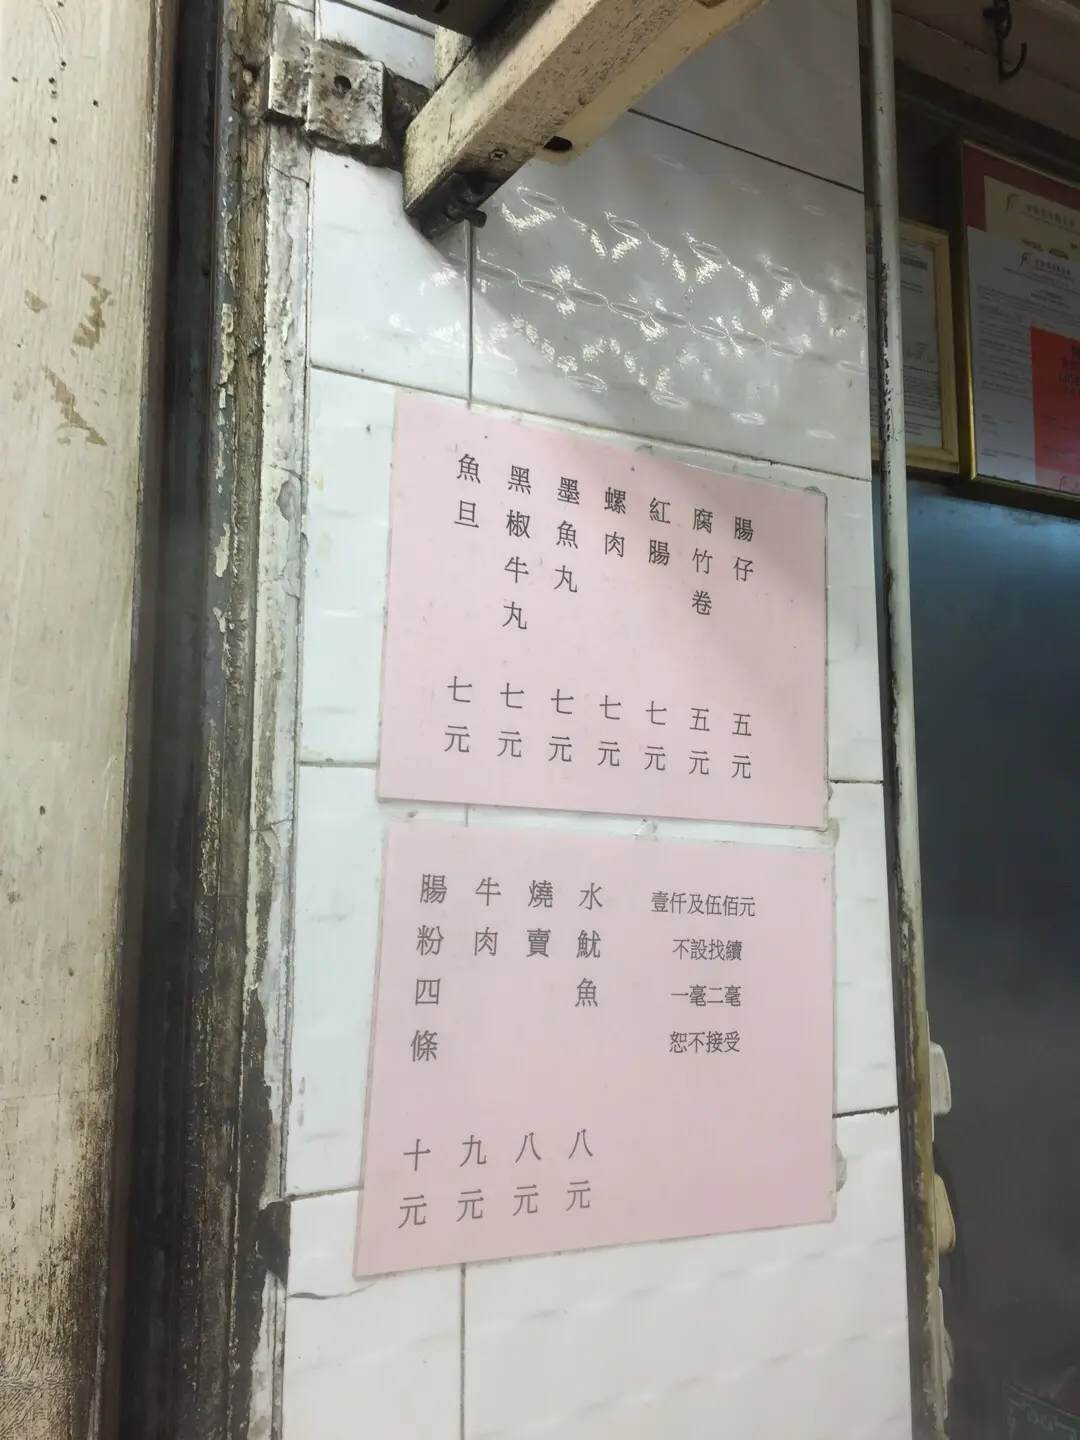 腸仔 五元
腐竹卷 五元
紅腸 七元
螺肉 七元
墨魚丸 七元
黑椒牛丸 七元
魚旦 七元
壹仟及伍佰元
不設找續
一毫二毫
恕不接受
水魷魚 八元
燒賣 八元
牛肉 九元
腸粉四條 十元